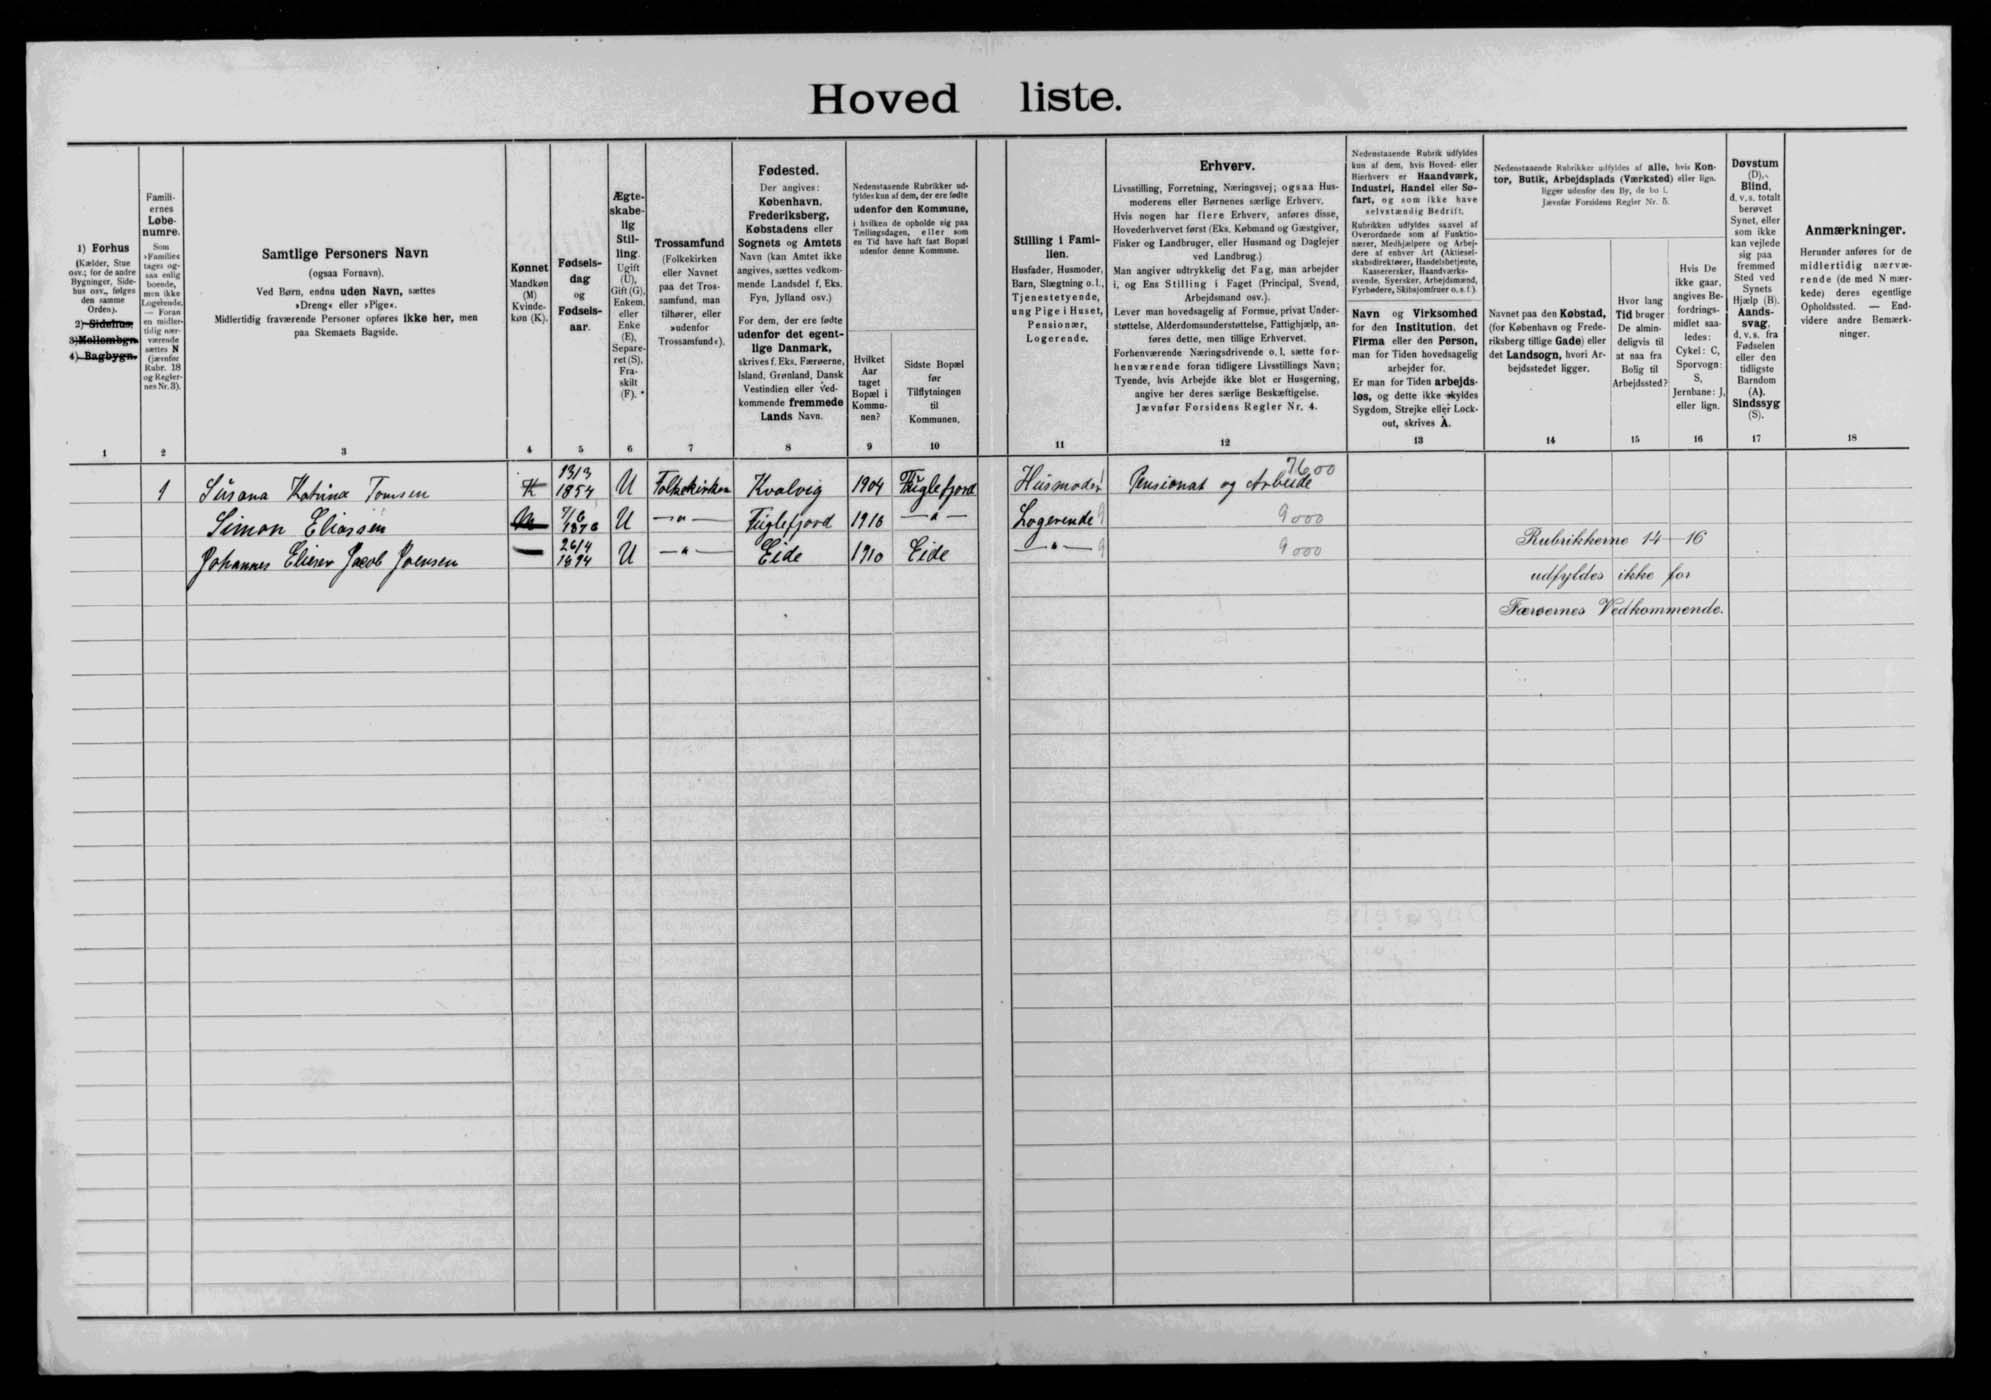 Hoved liste.
1) Forhus
(Kælder, Stue
osv.; for de andre
Bygninger, Side-
hus osv., følges
den samme
Orden).
2) Sidehus,
3) Mellembgn.
4) Bagbygn.
1
Famili-
ernes
Løbe-
numre.
Som
»Familie«
tages og-
saa enlig
boende,
men ikke
Logerende.
— Foran
en midler-
tidig nær-
værende
sættes N
(jævnfør
Rubr. 18
og Regler-
nes Nr. 3).
2
Samtlige Personers Navn
(ogsaa Fornavn).
Ved Børn, endnu uden Navn, sættes
»Dreng« eller »Pige«.
Midlertidig fraværende Personer opføres ikke her, men
paa Skemaets Bagside.
3
Kønnet
Mandkøn
(M)
Kvinde-
køn (K).
4
Fødsels-
dag
og
Fødsels-
aar.
5
Ægte-
skabe-
lig
Stil-
ling.
Ugift
(U),
Gift (G),
Enkem.
eller
Enke
(E),
Separe-
ret (S),
Fra-
skilt
(F).
6
Trossamfund
(Folkekirken
eller Navnet
paa det Tros-
samfund, man
tilhører, eller
»udenfor
Trossamfund«).
7
Fødested.
Der angives:
København,
Frederiksberg,
Købstadens eller
Sognets og Amtets
Navn (kan Amtet ikke
angives, sættes vedkom-
mende Landsdel f. Eks.
Fyn, Jylland osv.)
For dem, der ere fødte
udenfor det egent-
lige Danmark,
skrives f. Eks. Færøerne,
Island, Grønland, Dansk
Vestindien eller ved-
kommende fremmede
Lands Navn.
8
Nedenstaaende Rubrikker ud-
fyldes kun af dem, der ere fødte
udenfor den Kommune,
i hvilken de opholde sig paa
Tællingsdagen, eller som
en Tid have haft fast Bopæl
udenfor denne Kommune.
Hvilket
Aar
taget
Bopæl i
Kommu-
nen?
9
Sidste Bopæl
før
Tilflytningen
til
Kommunen.
10
Stilling i Fami-
lien.
Husfader, Husmoder,
Barn, Slægtning o. l.,
Tjenestetyende,
ung Pige i Huset,
Pensionær,
Logerende.
11
Erhverv.
Livsstilling, Forretning, Næringsvej; ogsaa Hus-
moderens eller Børnenes særlige Erhverv.
Hvis nogen har flere Erhverv, anføres disse,
Hovederhvervet først (Eks. Købmand og Gæstgiver,
Fisker og Landbruger, eller Husmand og Daglejer
ved Landbrug.)
Man angiver udtrykkelig det Fag, man arbejder
i, og Ens Stilling i Faget (Principal, Svend,
Arbejdsmand osv.).
Lever man hovedsagelig af Formue, privat Under-
støttelse, Alderdomsunderstøttelse, Fattighjælp, an-
føres dette, men tillige Erhvervet.
Forhenværende Næringsdrivende o. l. sætte for-
henværende foran tidligere Livsstillings Navn;
Tyende, hvis Arbejde ikke blot er Husgerning,
angive her deres særlige Beskæftigelse.
Jævnfør Forsidens Regler Nr. 4.
12
Nedenstaaende Rubrik udfyldes
kun af dem, hvis Hoved- eller
Bierhverv er Haandværk,
Industri, Handel eller Sø-
fart, og som ikke have
selvstændig Bedrift.
Rubrikken udfyldes saavel af
Overordnede som af Funktio-
nærer, Medhjælpere og Arbej-
dere af enhver Art (Aktiesel-
skabsdirektører, Handelsbetjente,
Kassererskser, Haandværks-
svende, Syersker, Arbejdsmænd,
Fyrbødere, Skibsjomfruer o. s. f.).
Navn og Virksomhed
for den Institution, det
Firma eller den Person,
man for Tiden hovedsagelig
arbejder for.
Er man for Tiden arbejds-
løs, og dette ikke skyldes
Sygdom, Strejke eller Lock-
out, skrives A.
13
Nedenstaaende Rubrikker udfyldes af alle, hvis Kon-
tor, Butik, Arbejdsplads (Værksted) eller lign.
ligger udenfor den By, de bo i.
Jævnfør Forsidens Regler Nr. 5.
Navnet paa den Købstad,
(for København og Frede-
riksberg tillige Gade) eller
det Landsogn, hvori Ar-
bejdsstedet ligger.
14
Hvor lang
Tid bruger
De almin-
deligvis til
at naa fra
Bolig til
Arbejdssted?
15
Hvis De
ikke gaar,
angives Be-
fordrings-
midlet saa-
ledes:
Cykel: C,
Sporvogn:
S,
Jernbane: J,
eller lign.
16
Døvstum
(D),
Blind,
d. v. s. totalt
berøvet
Synet, eller
som ikke
kan vejlede
sig paa
fremmed
Sted ved
Synets
Hjælp (B).
Aands-
svag,
d. v. s. fra
Fødselen
eller den
tidligste
Barndom
(A).
Sindssyg
(S).
17
Anmærkninger.
Herunder anføres for de
midlertidig nærvæ-
rende (de med N mær-
kede) deres egentlige
Opholdssted. — End-
videre andre Bemærk-
ninger.
18
1 Súsana Katrina Tomsen K 13/3 1854 U Folkekirken Kvalvig 1904 Fuglefjord Husmoder Pensionat og Arbeide 7600
Simon Eliassen M 7/6 1876 U —"— Fuglefjord 1916 —"— Logerende 9 9000
Johannes Elieser Jacob Joensen — 26/4 1894 U —"— Eide 1910 Eide —"— 9 9000
Rubrikkerne 14—16
udfyldes ikke for
Færøernes Vedkommende.